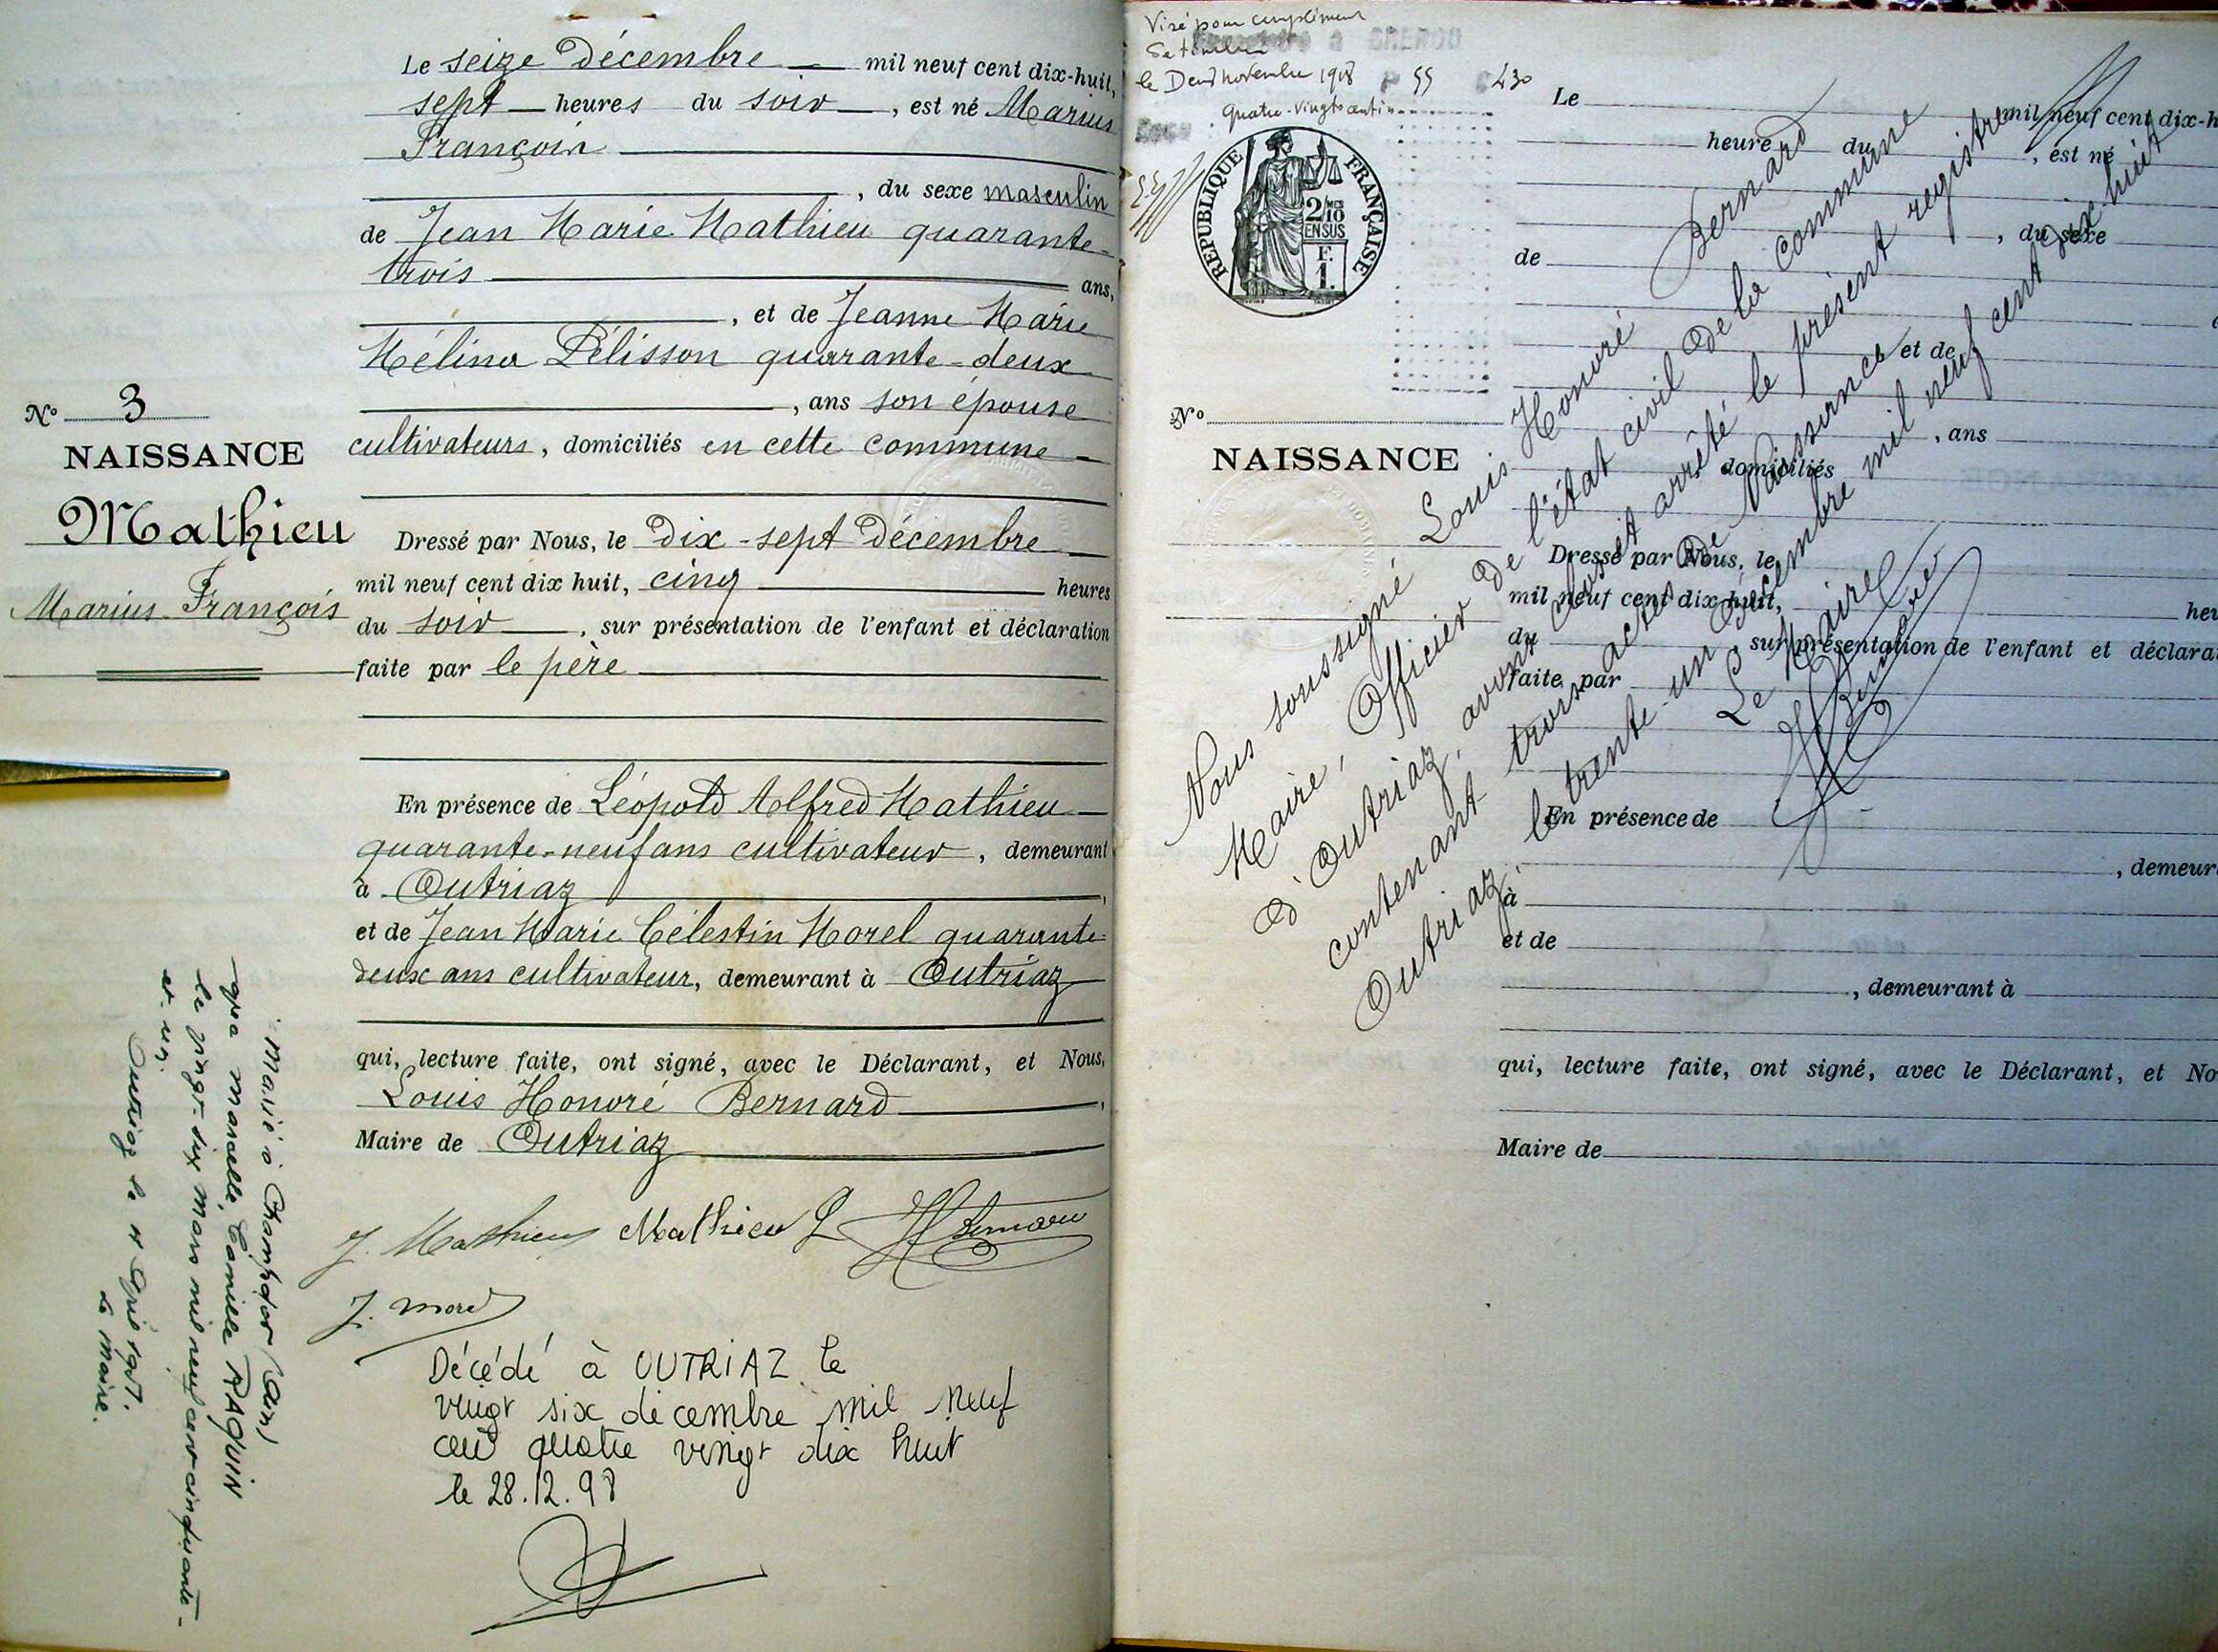 Le seize Décembre — mil neuf cent dix-huit,
sept — heures du soir —, est né Marius
François
, du sexe masculin
de Jean Marie Mathieu quarante-
trois ans,
, et de Jeanne Marie
Mélina Pélisson quarante-deux
, ans son épouse
cultivateurs, domiciliés en cette commune —
N° 3
NAISSANCE
Mathieu
Marius François
Dressé par Nous, le Dix-sept Décembre —
mil neuf cent dix huit, cinq heures
du soir —, sur présentation de l'enfant et déclaration
faite par le père
En présence de Léopold Alfred Mathieu —
quarante-neuf ans cultivateur, demeurant
à Outriaz,
et de Jean Marie Célestin Morel quarante-
deux ans cultivateur, demeurant à Outriaz
qui, lecture faite, ont signé, avec le Déclarant, et Nous,
Louis Honoré Bernard,
Maire de Outriaz
J. Mathieu Mathieu L HBernard
J. Morel
Décédé à OUTRIAZ le
vingt six décembre mil neuf
cent quatre vingt dix huit
le 28.12.98
Marié à Champdor (Ain)
Marcelle, Camille RAQUIN
le vingt-six Mars mil neuf cent cinquante-
et un.
Outriaz le Avril 1951.
Le Maire.
Visé pour
le Deux novembre 1918 55 430
Quatre-vingts centimes
REPUBLIQUE FRANÇAISE
2/10 MES
EN SUS
F.
1.
Le mil neuf cent dix-h
heure du , est né
, du sexe
de
et de
, ans
domiciliés
N°
NAISSANCE
Dressé par Nous, le
mil neuf cent dix huit, heu
du sur présentation de l'enfant et déclara
faite par
En présence de
, demeur
à
et de
, demeurant à
qui, lecture faite, ont signé, avec le Déclarant, et No
Maire de
Nous soussigné Louis Honoré Bernard
Maire, Officier de l'état civil de la commune
d'Outriaz, avons clos et arrêté le présent registre
contenant trois actes de Naissance
Outriaz, le trente-un Décembre mil neuf cent dix huit
Le Maire
HBernard